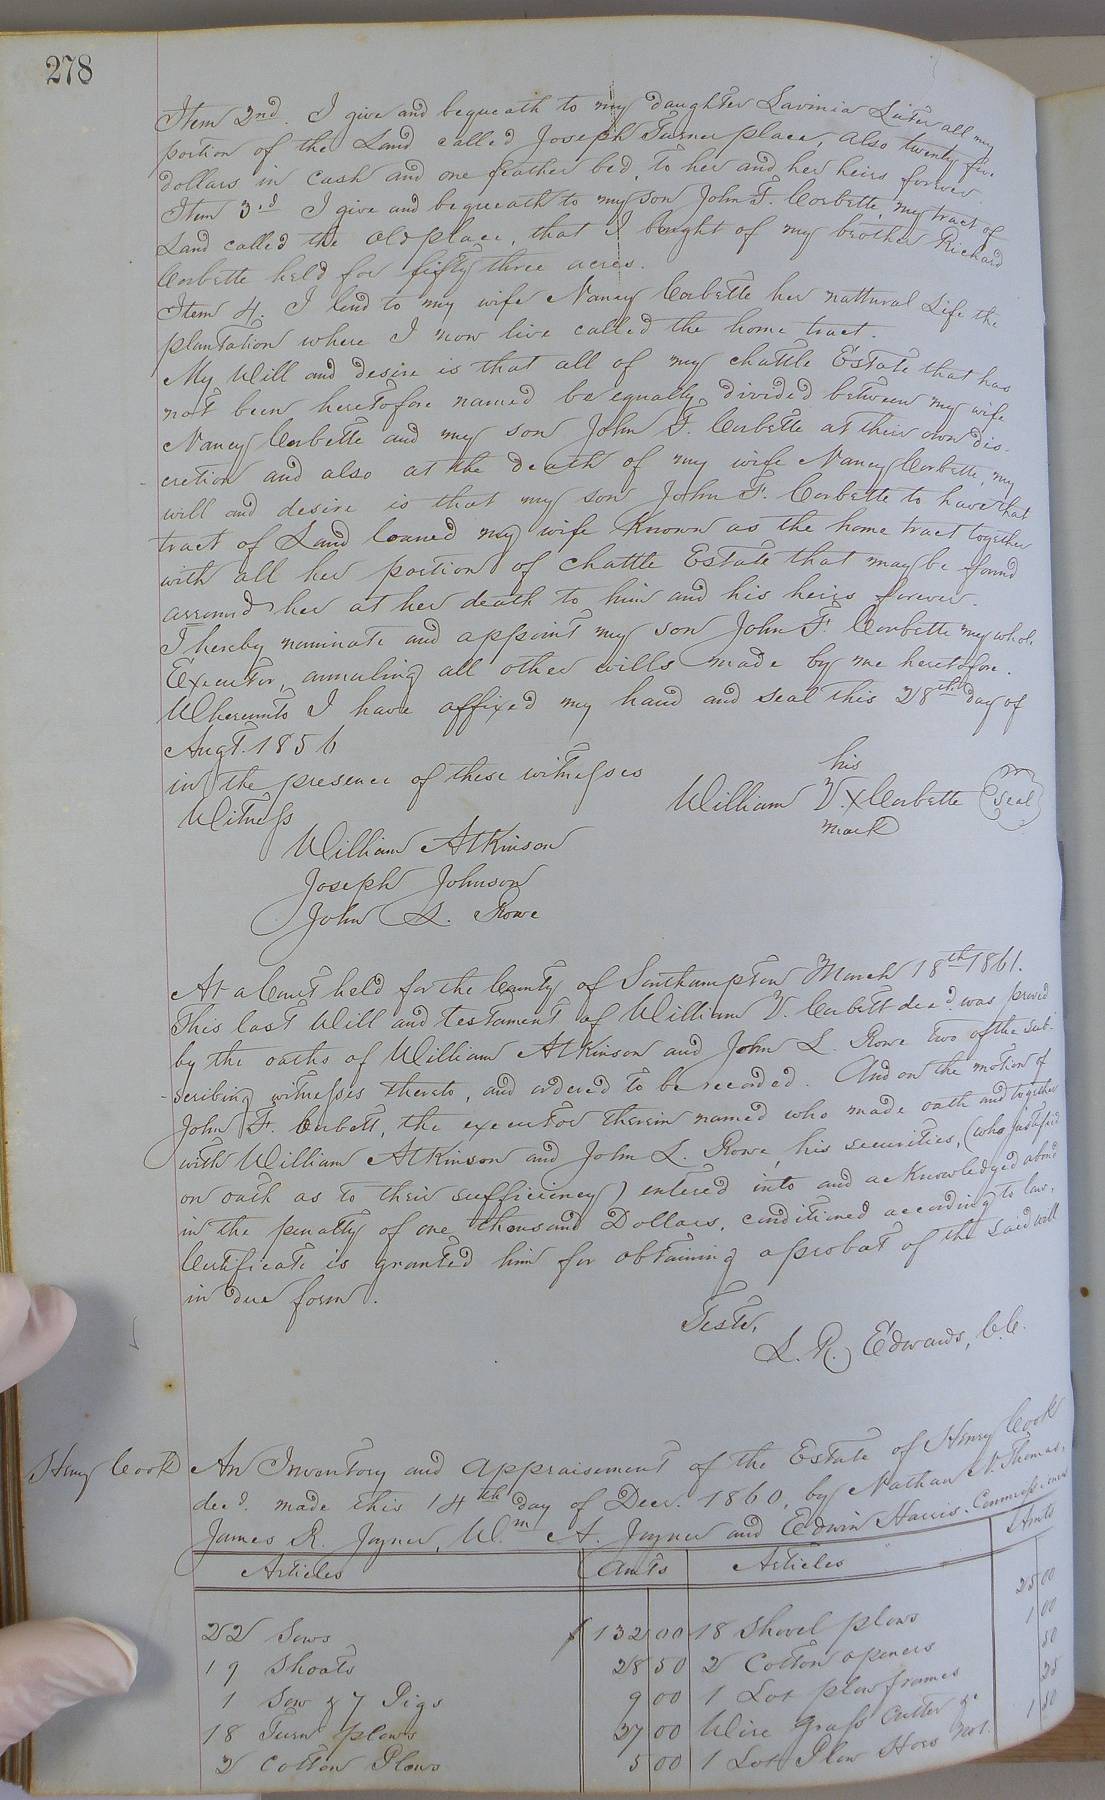 278
Item 2nd. I give and bequeath to my daughter Lavinia Liter all my
portion of the Land called Joseph Turner place, also twenty five
dollars in cash and one feather bed, to her and her heirs forever.
Item 3rd I give and bequeath to my son John F. Corbette, my tract of
Land called the Old place, that I bought of my brother Richard
Corbette held for fifty three acres.
Item 4. I lend to my wife Nancy Corbette her nattural Life the
plantation where I now live called the home tract.
My Will and desire is that all of my chattle Estate that has
not been heretofore named be equally divided between my wife
Nancy Corbette and my son John F. Corbette at their own dis-
cretion and also at the death of my wife Nancy Corbette, my
will and desire is that my son John F. Corbette to have that
tract of Land loaned my wife Known as the home tract together
with all her portion of chattle Estate that may be found
arround her at her death to him and his heirs forever.
I hereby nominate and appoint my son John F. Corbette my whole
Executor, annuling all other wills made by me heretofore.
Whereunto I have affixed my hand and seal this 28th day of
Augt. 1856
in the presence of these witnesses
his
William V. x Corbette (seal)
mark
Witness
William Atkinson
Joseph Johnson
John L. Rowe
At a Court held for the County of Southampton March 18th 1861.
This last Will and testament of William V. Corbett decd. was proved
by the oaths of William Atkinson and John L. Rowe two of the sub-
scribing witnesses thereto, and ordered to be recorded. And on the motion of
John F. Corbett, the executor therein named who made oath and together
with William Atkinson and John L. Rowe, his securities, (who justified
on oath as to their sufficiency) entered into and acknowledged a bond
in the penalty of one thousand Dollars, conditioned according to law,
Certificate is granted him for obtaining a probat of the said will
in due form.
Teste,
L. R. Edwards, C.C.
Henry Cook
An Inventory and Appraisement of the Estate of Henry Cook
decd. made this 14th day of Decr. 1860, by Nathan N. Thomas,
James R. Joyner, Wm A. Joyner and Edwin Harris Commissioners
Articles Amts Articles Amts
22 Sows $ 132 00 18 Shovel plows 25 00
19 Shoats 28 50 2 Cotton openers 1 00
1 Sow & 7 Pigs 9 00 1 Lot plow frames 50
18 Turn plows 27 00 Wire Grass Cutter &c 25
2 Cotton Plows 5 00 1 Lot Plow Hoes not. 1 50